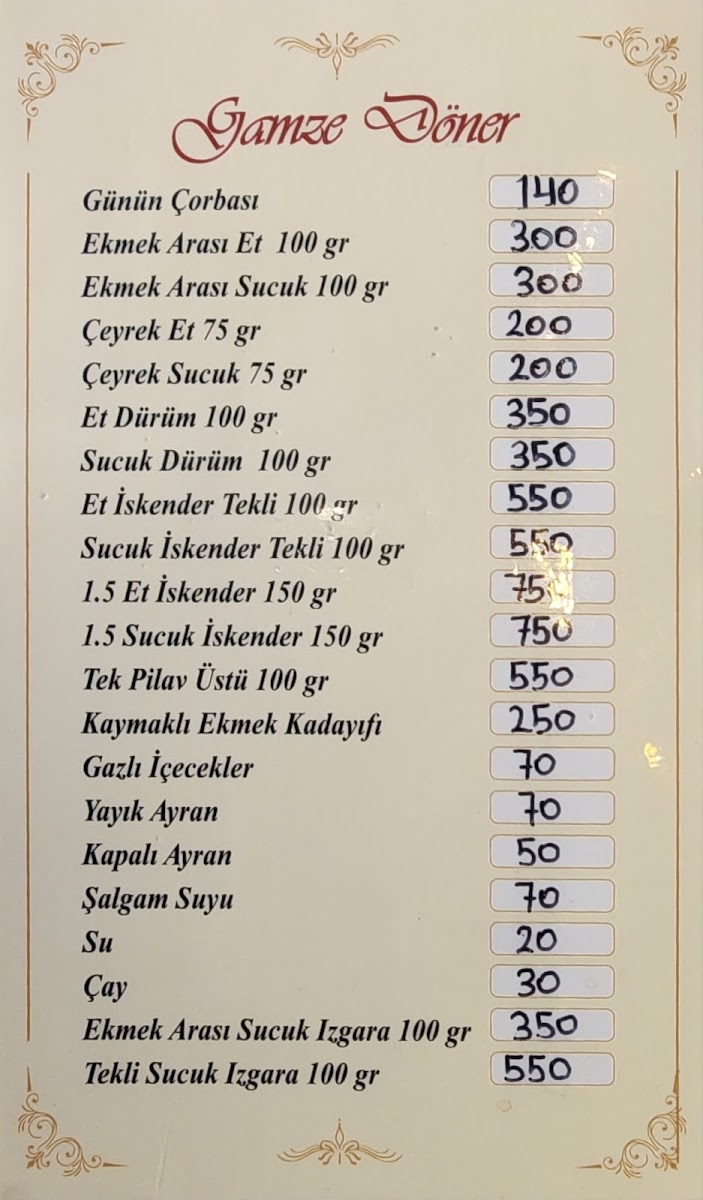 Gamze Döner
Günün Çorbası 140
Ekmek Arası Et 100 gr 300
Ekmek Arası Sucuk 100 gr 300
Çeyrek Et 75 gr 200
Çeyrek Sucuk 75 gr 200
Et Dürüm 100 gr 350
Sucuk Dürüm 100 gr 350
Et İskender Tekli 100 gr 550
Sucuk İskender Tekli 100 gr 550
1.5 Et İskender 150 gr
1.5 Sucuk İskender 150 gr 750
Tek Pilav Üstü 100 gr 550
Kaymaklı Ekmek Kadayıfı 250
Gazlı İçecekler 70
Yayık Ayran 70
Kapalı Ayran 50
Şalgam Suyu 70
Su 20
Çay 30
Ekmek Arası Sucuk Izgara 100 gr 350
Tekli Sucuk Izgara 100 gr 550